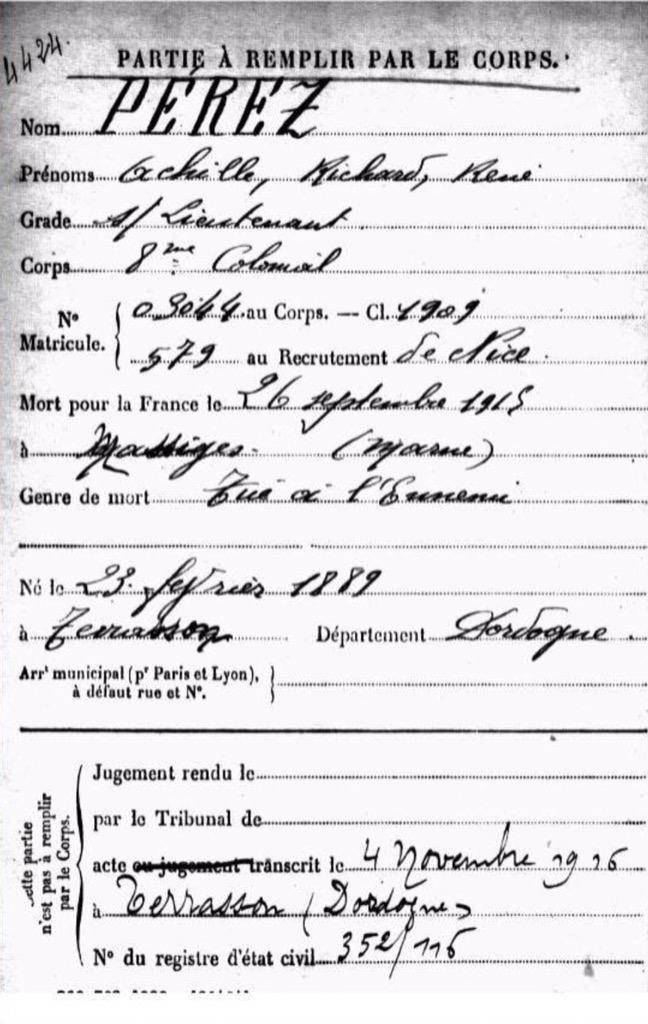 4424.
PARTIE À REMPLIR PAR LE CORPS.
Nom PÉREZ
Prénoms Achille, Richard, René
Grade s/Lieutenant
Corps 8me Colonial
No Matricule. { 03044 au Corps. — Cl. 1909
579 au Recrutement de Nice.
Mort pour la France le 26 septembre 1915
à Massiges. (Marne)
Genre de mort Tué à l'Ennemi
Né le 23 février 1889
à Terrasson Département Dordogne.
Arrt municipal (pr Paris et Lyon), }
à défaut rue et No.
cette partie
n'est pas à remplir
par le Corps.
Jugement rendu le
par le Tribunal de
acte ou jugement transcrit le 4 Novembre 1916
à Terrasson (Dordogne)
No du registre d'état civil 352/116